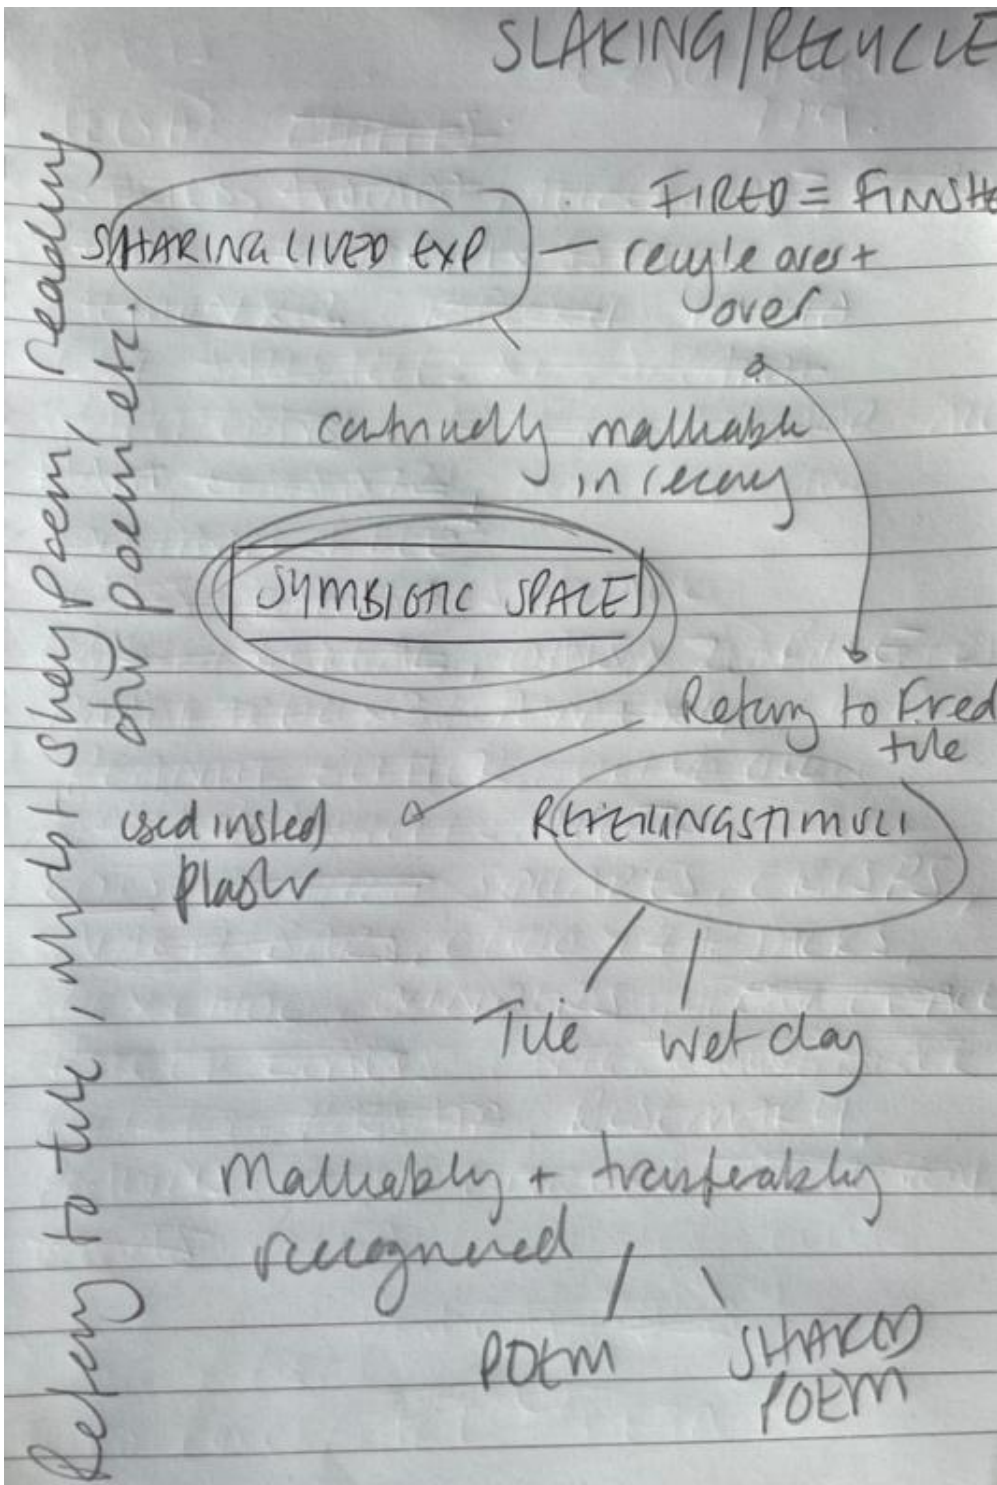 SLAKING/RECYCLE
FIRED = FINISHE
SHARING LIVED EXP — recycle over +
over
continually malleable
in recovery
SYMBIOTIC SPACE
Return to Fired
tile
used instead
plaster
STIMULI
Tile wet clay
Malleably + transferably
recognised
POEM SHARED
POEM
to tile, whilst
poem, reading
poem etc.